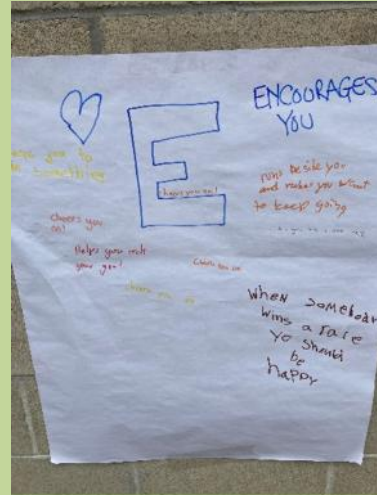 ENCOURAGES
YOU
E
you to
cheers you on!
runs beside you
and makes you want
to keep going
cheers you
on!
Helps you
your goal
cheers you on
cheers you on
When somebody
wins a race
yo should
be
happy